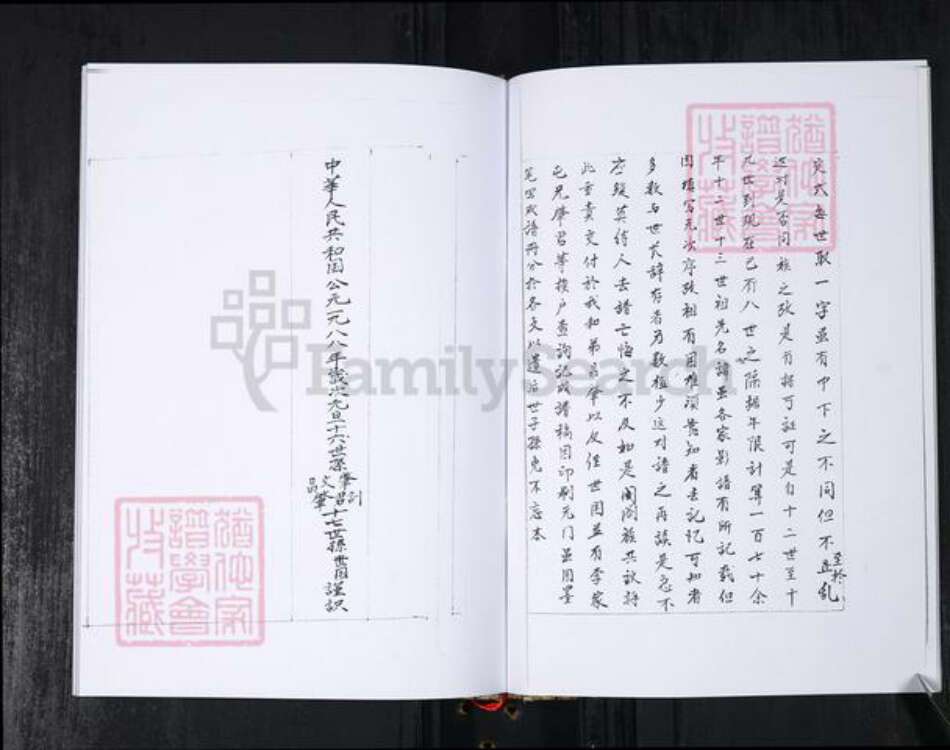 定式每世取一字虽有中下之不同但不至於乱
远对是否同族之疑是有据可証可是自十二世至十
九世到现在已有八世之隔据年限计算一百七十余
年十二世十三世祖先名諱虽各家影譜有所记载但
因填写无次序致祖有困难须靠知者去记记可知者
多数与世长辞存者为数极少这对譜之再談是急不
容缓莫待人去譜亡悔之不及如是阖族共议将
此重责交付於我和弟品肇以及侄世国並有李家
屯兄肇習等挨户查詢记成譜稿因印刷无门虽用墨
笔写成譜册分於各支以遗后世子孫免不忘本
中華人民共和国公元一九八八年歲次元旦十六世孫
文肇 肇習
十七世孫世国 謹識
猶他家譜學會收藏
猶他家譜學會收藏
FamilySearch